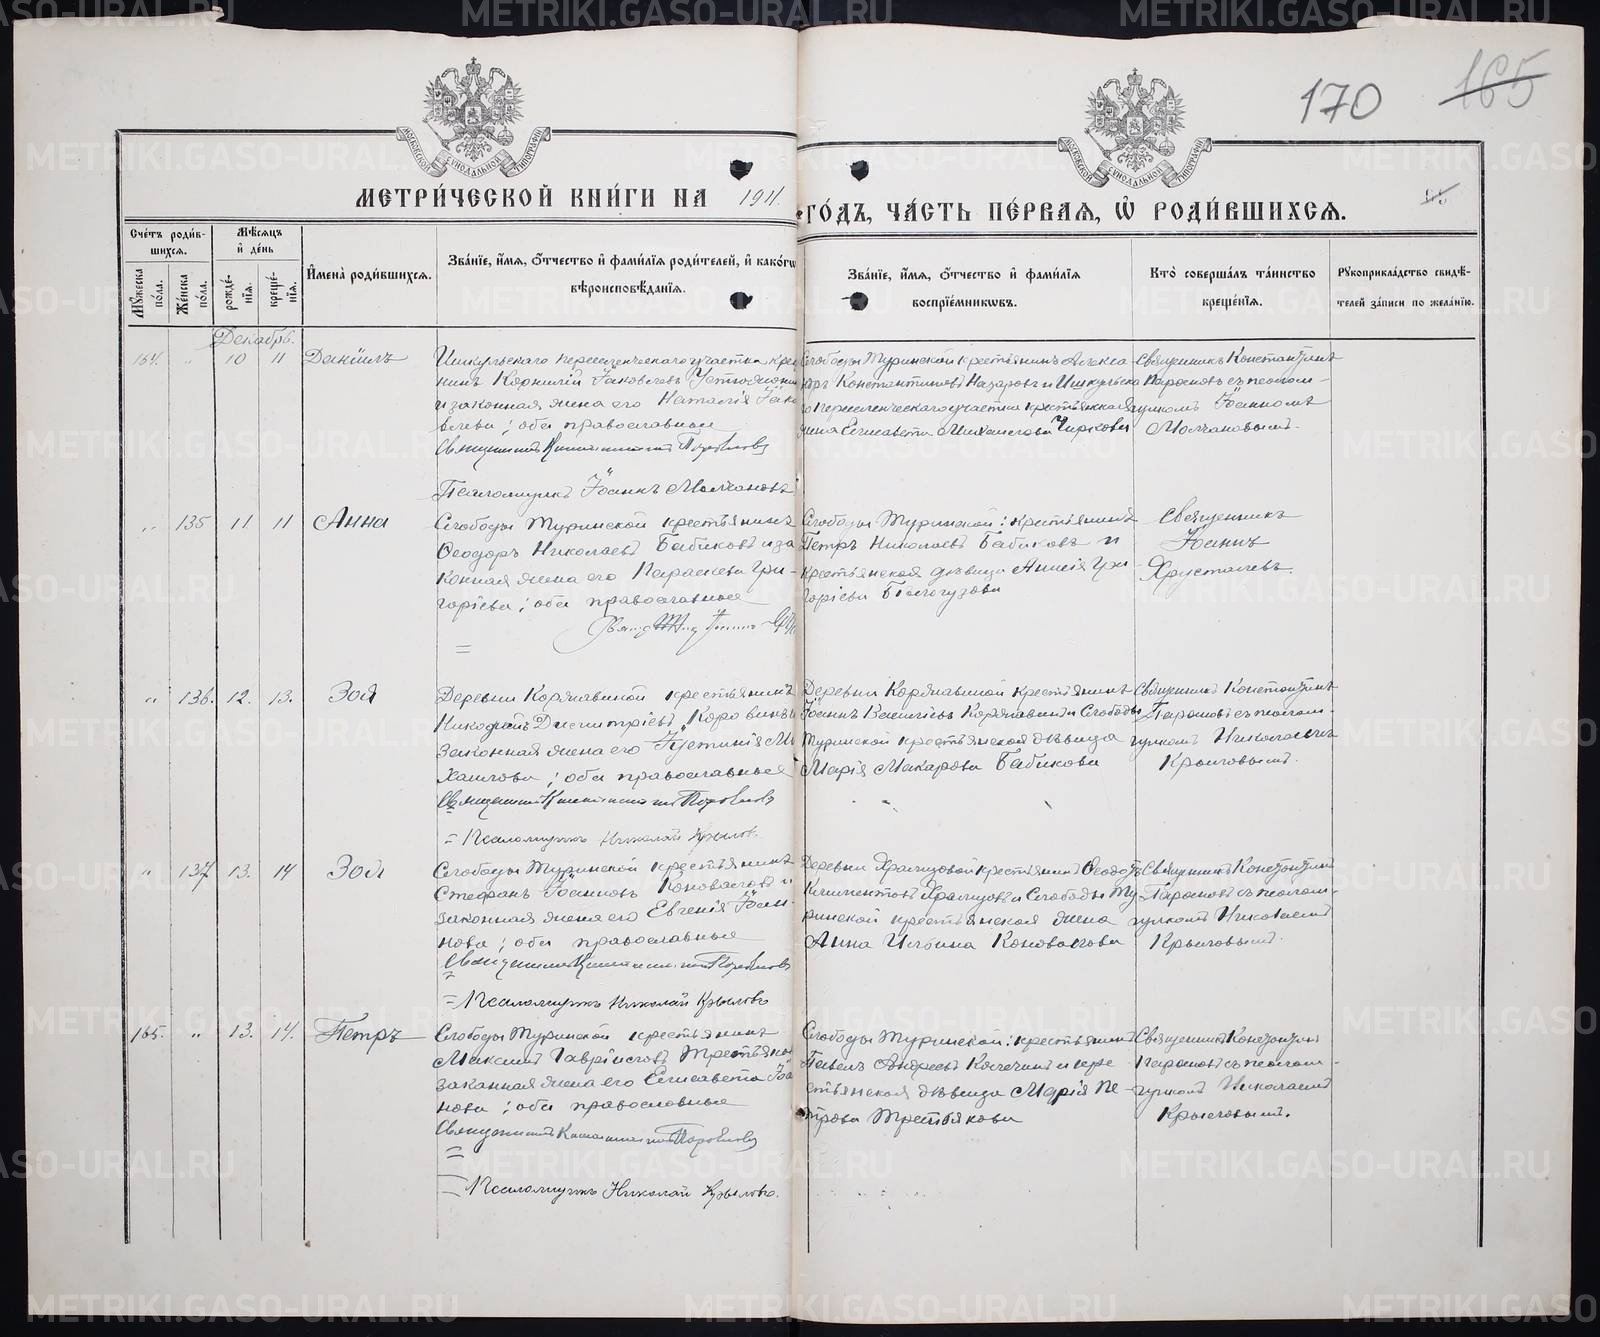 170 165
МОСКОВСКОЙ СИНОДАЛЬНОЙ ТИПОГРАФІИ
МОСКОВСКОЙ СИНОДАЛЬНОЙ ТИПОГРАФІИ
МЕТРИ́ЧЕСКОЙ КНИ́ГИ НА 1911.
ГО́ДЪ, ЧА́СТЬ ПЕ́РВАЯ, Ѡ҆ РОДИ́ВШИХСЯ.
Сче́тъ роди́вшихся.
Мꙋ́жеска по́ла.
Же́нска по́ла.
Мѣ́сяцъ и҆ де́нь
рожде́нїя.
креще́нїя.
И҆мена̀ роди́вшихся.
Зва́нїе, и҆́мя, ѻ҆́тчество и҆ фами́лїя роди́телей, и҆ како́гѡ
вѣроисповѣ́данїя.
Зва́нїе, и҆́мя, ѻ҆́тчество и҆ фами́лїя
воспрїе́мникѡвъ.
Кто̀ соверша́лъ та́инство
креще́нїя.
Рꙋкоприкла́дство свидѣ́телей за́писи по жела́нїю.
Декабрь.
164. " 10 11 Даніилъ
Ишкульскаго переселенческаго участка крес
нинъ Корнилій Іаковлевъ
и законная жена его Наталія Іако
влева; оба православные
Священникъ Константинъ
Псаломщикъ Іоаннъ Молчановъ
Слободы Туринской крестьянинъ Алекса
ндръ Константиновъ Назаровъ и Ишкульска
го переселенческаго участка крестьянская
Елисавета Михаилова Чиркова
Священникъ Константинъ
съ псалом-
щикомъ Іоанномъ
Молчановымъ.
" 135 11 11 Анна
Слободы Туринской крестьянинъ
Ѳеодоръ Николаевъ Бабиковъ и за
конная жена его Параскева Гри-
горіева; оба православные
Слободы Туринской: крестьянинъ
Петръ Николаевъ Бабиковъ и
крестьянская дѣвица Анисія Гри
горіева Бѣлогузова
Священникъ
Іоаннъ
Хрусталевъ.
" 136. 12. 13. Зоя
Деревни Корявиной крестьянинъ
Никодимъ Димитріевъ Коровинъ и
законная жена его Іустинія Ми
хаилова; оба православные
Священникъ Константинъ
= Псаломщикъ Николай Крыловъ.
Деревни Корявиной крестьянинъ
Іоаннъ и Слободы
Туринской крестьянская дѣвица
Марія Макарова Бабикова
Священникъ Константинъ
съ псалом-
щикомъ Николаемъ
Крыловымъ.
" 137 13. 14 Зоя
Слободы Туринской крестьянинъ
Стефанъ Іоанновъ Коноваловъ и
законная жена его Евгенія Іоан-
нова; оба православные
Священникъ Константинъ
= Псаломщикъ Николай Крыловъ
Деревни Храмцовой крестьянинъ
Климентовъ Храмцовъ и Слободы Ту
ринской крестьянская жена
Анна Ильина Коновалова
Священникъ Константинъ
съ псалом-
щикомъ Николаемъ
Крыловымъ.
165. " 13. 14. Петръ
Слободы Туринской крестьянинъ
Максимъ Гавріиловъ Третьяко
законная жена его Елисавета Іоа
нова; оба православные
Священникъ Константинъ
=
= Псаломщикъ Николай Крыловъ.
Слободы Туринской: крестьянинъ
Павелъ Андреевъ и кре
стьянская дѣвица Марія Пе
трова Третьякова
Священникъ Константинъ
съ псалом-
щикомъ Николаемъ
Крыловымъ.
METRIKI.GASO-URAL.RU